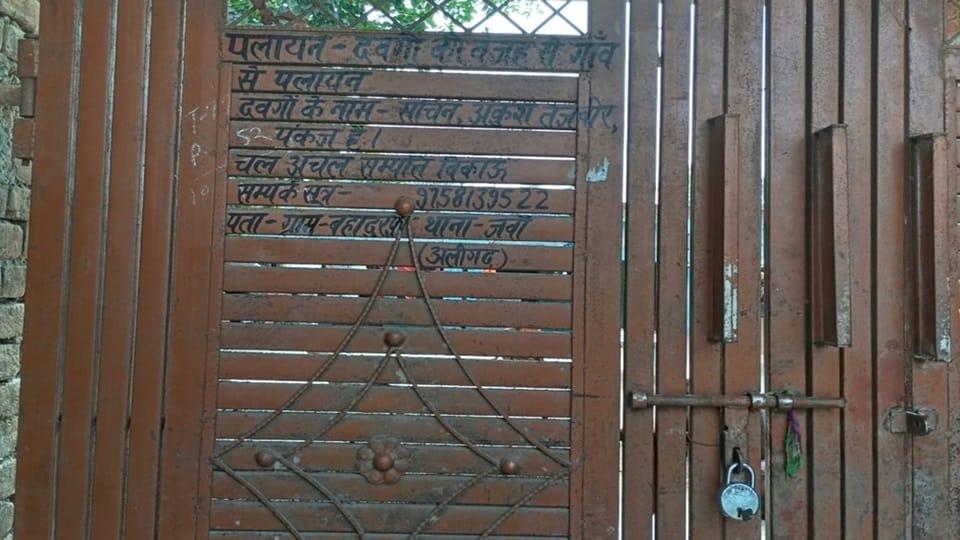 पलायन - दबंगों की वजह से गाँव
से पलायन
दबंगों के नाम - सचिन, अंकुश तेजवीर,
पंकज है।
चल अचल सम्पत्ति बिकाऊ
सम्पर्क सूत्र - 9758139522
पता - ग्राम - बहादुरपुर थाना - जवाँ
(अलीगढ़)
52